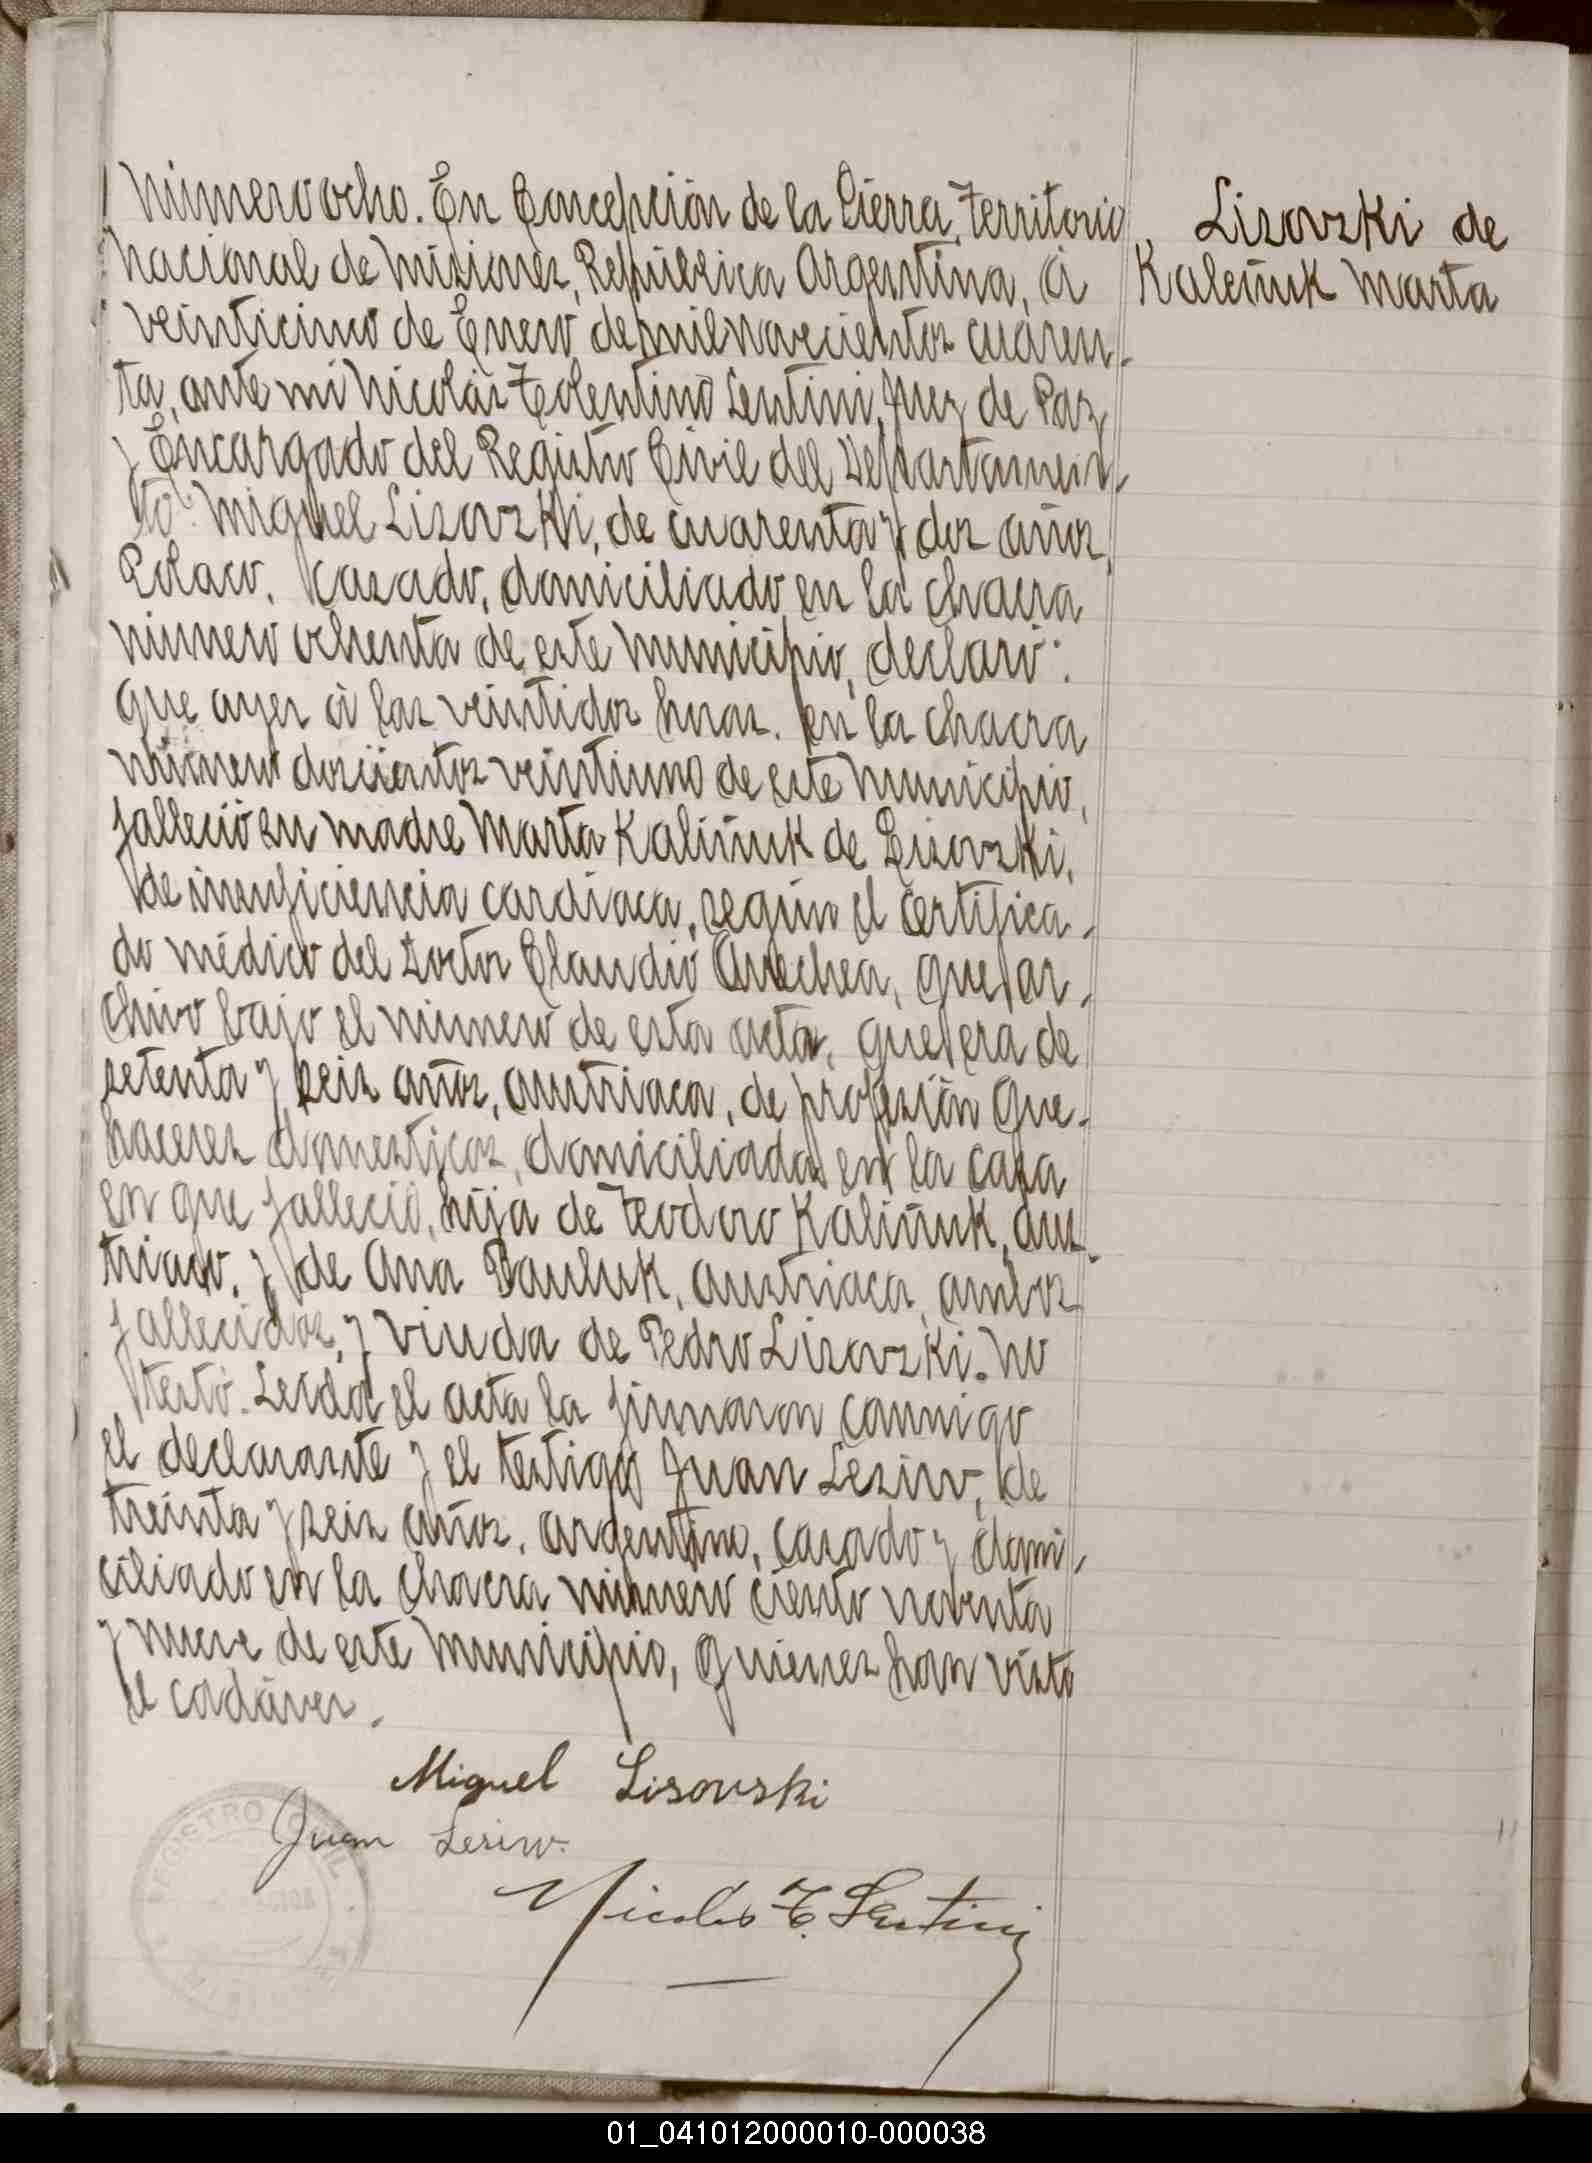 Número ocho. En Concepción de la Sierra, Territorio
Nacional de Misiones, República Argentina, á
veinticinco de Enero de mil novecientos cuaren-
ta, ante mí Nicolás Tolentino Sentini, Juez de Paz
y Encargado del Registro Civil del Departamen-
to: Miguel Lisovski, de cuarenta y dos años,
Polaco, casado, domiciliado en la chacra
número ochenta de este Municipio, declaró:
Que ayer á las veintidos horas, en la chacra
número doscientos veintiuno de este Municipio,
falleció su madre Marta Kaliñuk de Lisovski,
de insuficiencia cardíaca, según el certifica-
do médico del Doctor Claudio Arrechea, que ar-
chivo bajo el número de esta acta, que era de
setenta y seis años, austriaca, de profesión que-
haceres domesticos, domiciliada en la casa
en que falleció, hija de Teodoro Kaliñuk, aus-
triaco, y de Ana Pauluk, austriaca, ambos
fallecidos, y viuda de Pedro Lisovski. No
testó. Leída el acta la firmaron conmigo
el declarante y el testigo Juan Lesiw, de
treinta y seis años, argentino, casado y domi-
ciliado en la chacra número ciento noventa
y nueve de este Municipio, quienes han visto
el cadáver.
Lisovski de
Kaleñuk Marta
Miguel Lisovski
Juan Lesiw.
Nicolás T. Sentini
REGISTRO CIVIL
01_041012000010-000038